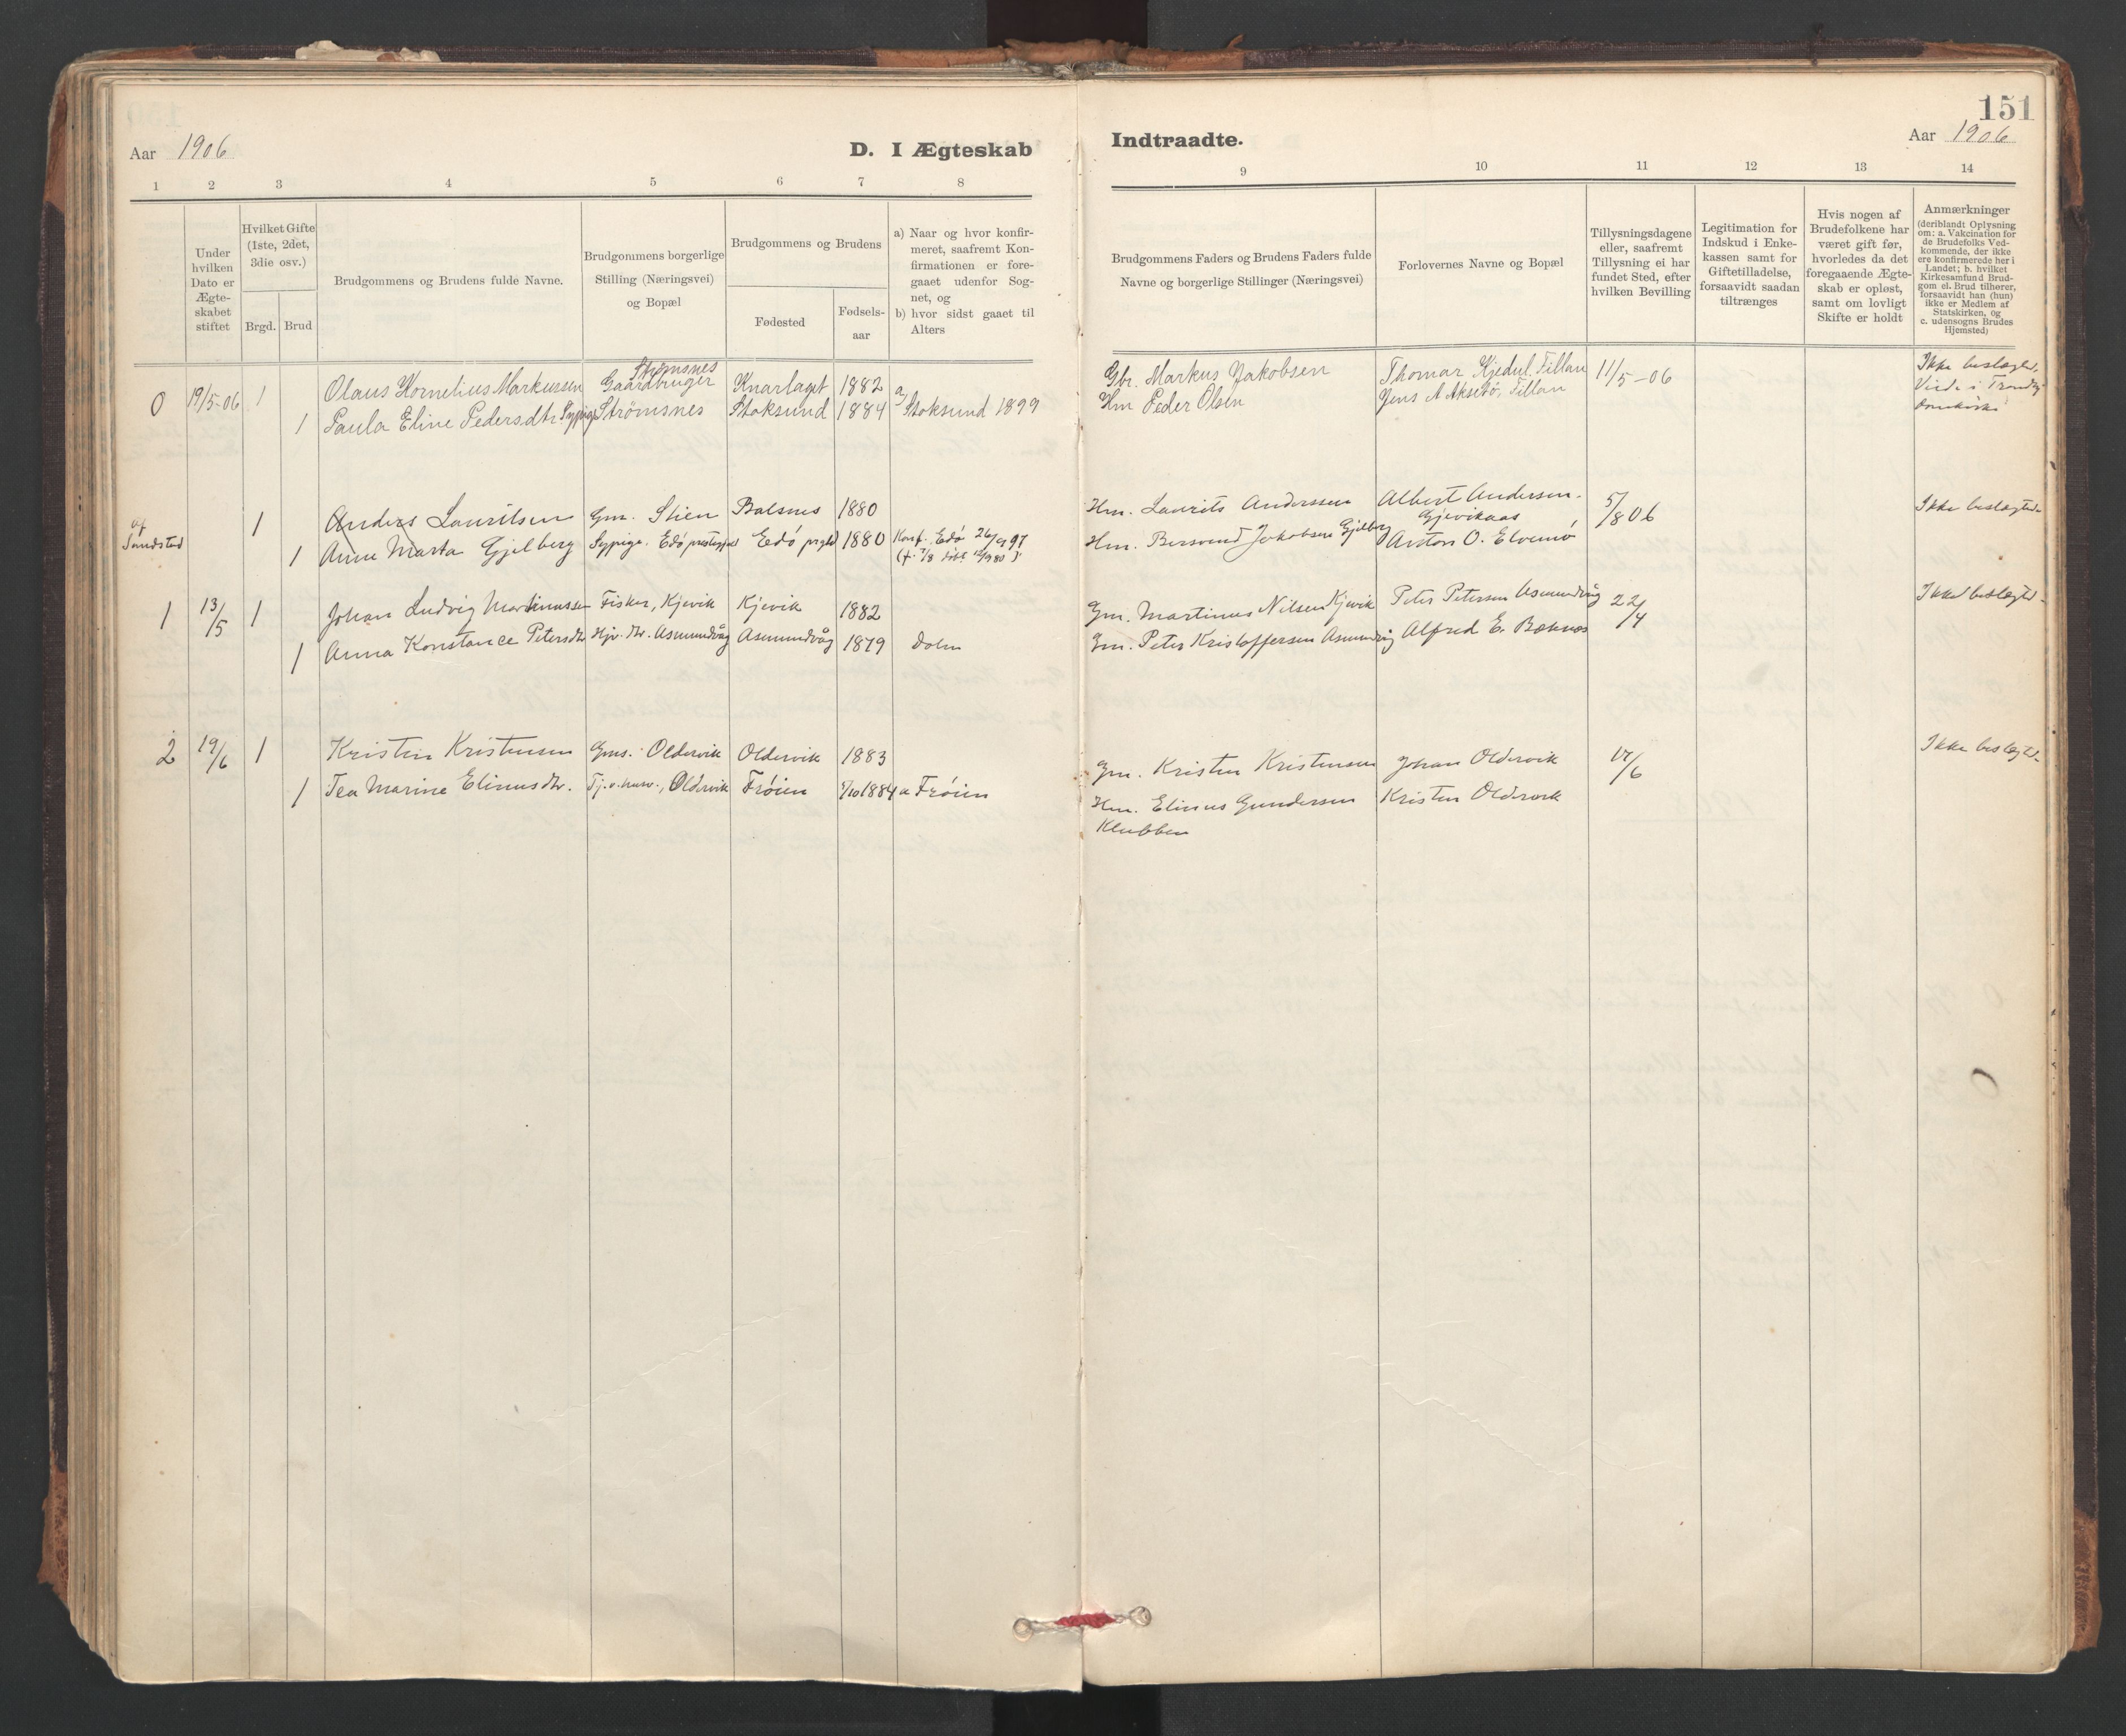 151
Aar 1906
D. I Ægteskab
Indtraadte.
Aar 1906
1 2 3 4 5 6 7 8
9 10 11 12 13 14
Under hvilken Dato er Ægte-skabet stiftet
Hvilket Gifte (1ste, 2det, 3die osv.)
Brgd. Brud
Brudgommens og Brudens fulde Navne.
Brudgommens borgerlige Stilling (Næringsvei) og Bopæl
Brudgommens og Brudens
Fødested
Fødsels-aar
a) Naar og hvor konfir-meret, saafremt Kon-firmationen er fore-gaaet udenfor Sog-net, og
b) hvor sidst gaaet til Alters
Brudgommens Faders og Brudens Faders fulde
Navne og borgerlige Stillinger (Næringsvei)
Forlovernes Navne og Bopæl
Tillysningsdagene eller, saafremt Tillysning ei har fundet Sted, efter hvilken Bevilling
Legitimation for Indskud i Enke-kassen samt for Giftetilladelse, forsaavidt saadan tiltrænges
Hvis nogen af Brudefolkene har været gift før, hvorledes da det foregaaende Ægte-skab er opløst, samt om lovligt Skifte er holdt
Anmærkninger
(deriblandt Oplysning om: a. Vakcination for de Brudefolks Ved-kommende, der ikke ere konfirmerede her i Landet; b. hvilket Kirkesamfund Brud-gom el. Brud tilhører, forsaavidt han (hun) ikke er Medlem af Statskirken, og c. udensogns Brudes Hjemsted)
0 19/5-06 1 Olaus Kornelius Markussen Gaardbruger Strømsnes Knarlaget 1882
Gbr. Markus Jakobsen Thomar Kjedul. Tillan 11/5-06 Ikke beslægt.
1 Paula Eline Pedersdtr. Sypige Strømsnes Stoksund 1884 a) Stoksund 1899
Hm Peder Olsen Jens A Aksetø, Tillan
1 Anders Lauritsen Gm. Stien Balsnes 1880
Hm. Laurits Anderssen Albert Andersen. Gjevikaas 5/8 06 Ikke beslægted.
af Sundsted
1 Anne Marta Gjelberg Sypige. Edø Edø prgld 1880 Konf. Edø 26/9 97
Hm. Jakobsen Gjelberg Anton O. Elvemo
1 13/5 1 Johan Ludvig Martinussen Fisker, Kjevik Kjevik 1882
Gm. Martinus Nilsen Kjevik Peter Petersen Asmundvåg 22/4 Ikke beslægted.
1 Anna Konstance Petersdtr Hjv. dtr. Asmundvåg Asmundvåg 1879 Dolm
Gm. Peter Kristoffersen Asmundvåg Alfred E. Bæknes
2 19/6 1 Kristen Kristensen Gms. Oldervik Oldervik 1883
Gm. Kristen Kristensen Johan Oldervik 17/6 Ikke beslægted.
1 Tea Marine Elinusdtr. Oldervik Frøien 1884 a Frøien
Hm. Elinus Gundersen Kristen Oldervik
Klubben